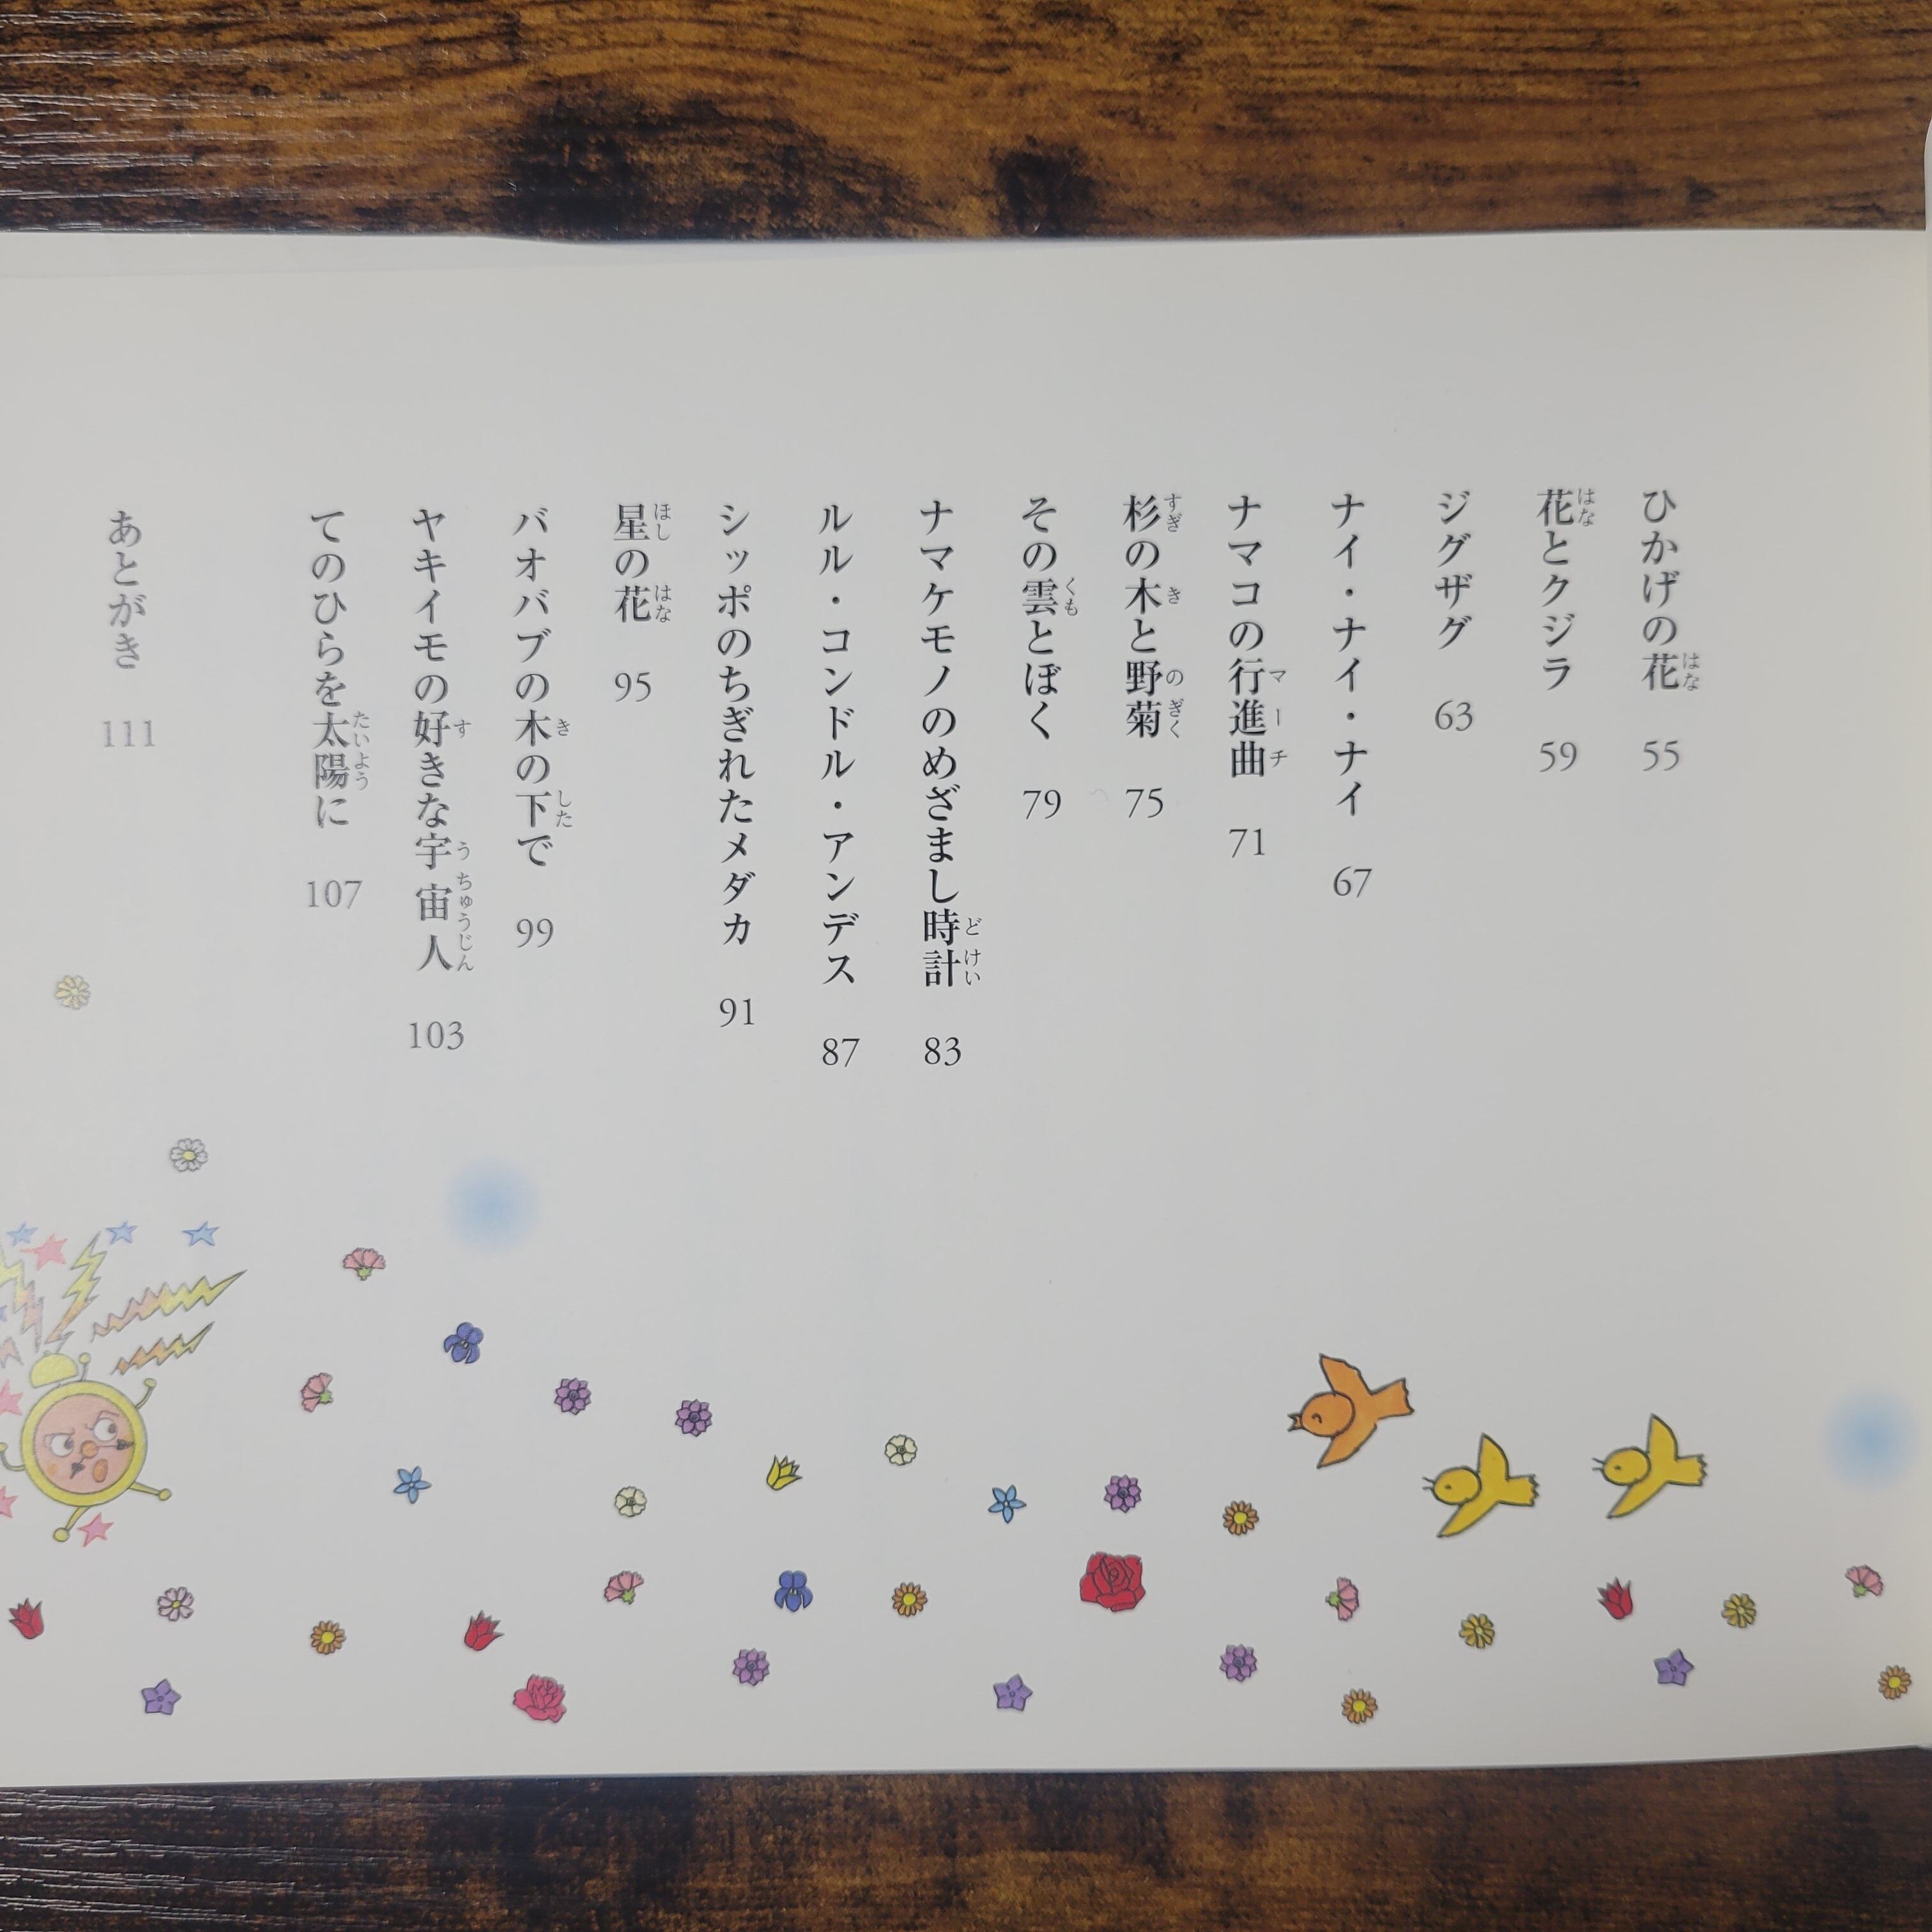 ひかげの花 55
花とクジラ 59
ジグザグ 63
ナイ・ナイ・ナイ 67
ナマコの行進曲 71
杉の木と野菊 75
その雲とぼく 79
ナマケモノのめざまし時計 83
ルル・コンドル・アンデス 87
シッポのちぎれたメダカ 91
星の花 95
バオバブの木の下で 99
ヤキイモの好きな宇宙人 103
てのひらを太陽に 107
あとがき 111